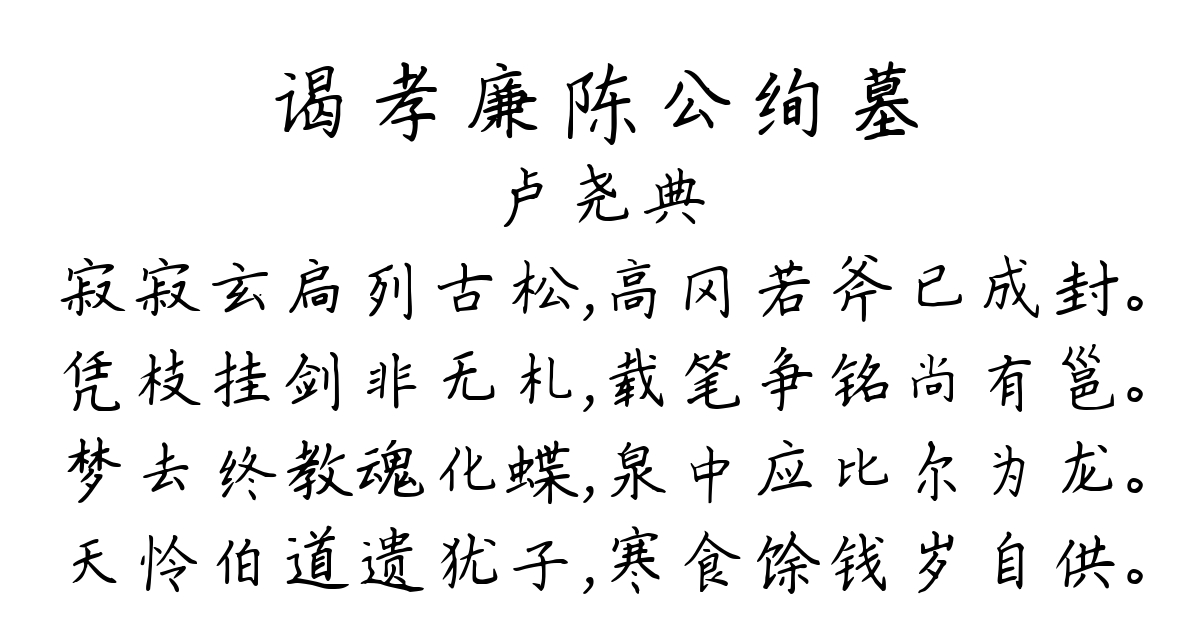 谒孝廉陈公绚墓
卢尧典
寂寂玄扃列古松,高冈若斧已成封。
凭枝挂剑非无札,载笔争铭尚有邕。
梦去终教魂化蝶,泉中应比尔为龙。
天怜伯道遗犹子,寒食馀钱岁自供。